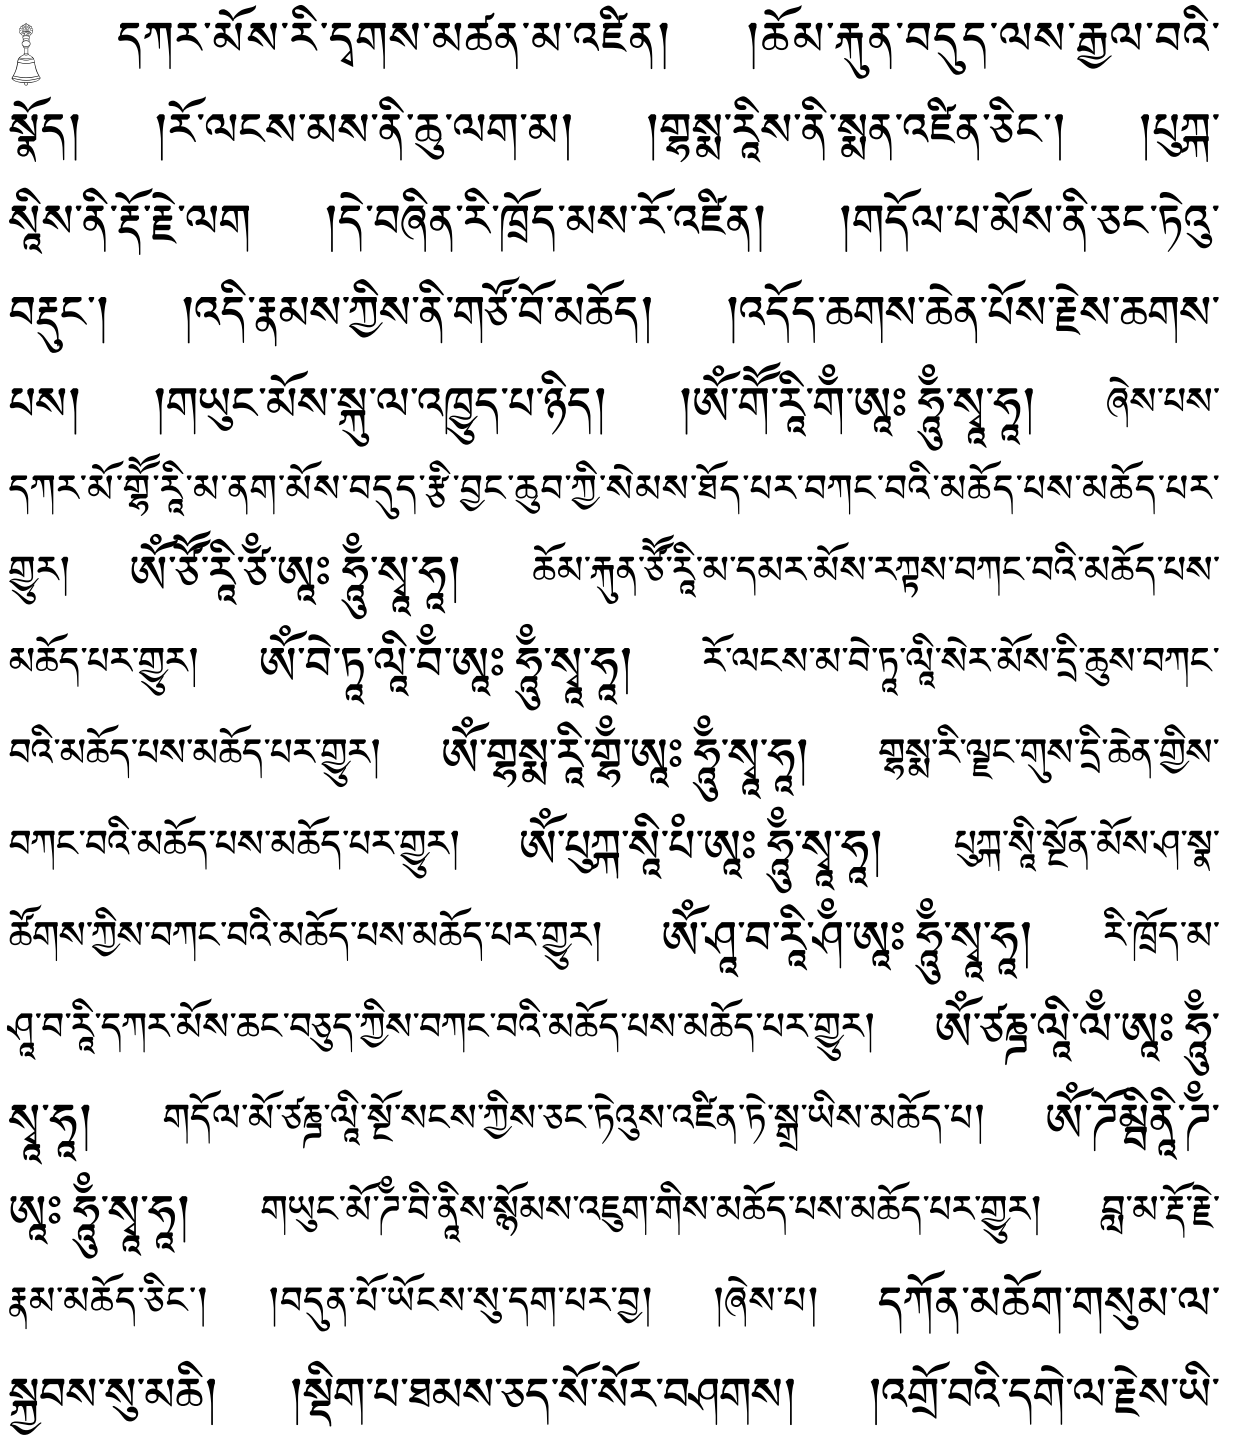 དཀར་མོས་རི་དྭགས་མཚན་མ་འཛིན། །ཆོམ་རྐུན་བདུད་ལས་རྒྱལ་བའི་
སྣོད། །རོ་ལངས་མས་ནི་ཆུ་ལག་མ། །གྷསྨ་རཱིས་ནི་སྨན་འཛིན་ཅིང་། །པུཀྐ་
སཱིས་ནི་རྡོ་རྗེ་ལག །དེ་བཞིན་རི་ཁྲོད་མས་རོ་འཛིན། །གདོལ་པ་མོས་ནི་ཅང་ཏེའུ་
བརྡུང་། །འདི་རྣམས་ཀྱིས་ནི་གཙོ་བོ་མཆོད། །འདོད་ཆགས་ཆེན་པོས་རྗེས་ཆགས་
པས། །གཡུང་མོས་སྐུ་ལ་འཁྱུད་པ་ཉིད། །ཨོཾ་གཽ་རཱི་གཾ་ཨཱཿ ཧཱུཾ་སྭཱ་ཧཱ། ཞེས་པས་
དཀར་མོ་གྷཽ་རཱི་མ་ནག་མོས་བདུད་རྩི་བྱང་ཆུབ་ཀྱི་སེམས་ཐོད་པར་བཀང་བའི་མཆོད་པས་མཆོད་པར་
གྱུར། ཨོཾ་ཙཽ་རཱི་ཙཾ་ཨཱཿ ཧཱུཾ་སྭཱ་ཧཱ། ཆོམ་རྐུན་ཙཽ་རཱི་མ་དམར་མོས་རཀྟས་བཀང་བའི་མཆོད་པས་
མཆོད་པར་གྱུར། ཨོཾ་བེ་ཏཱ་ལཱི་བཾ་ཨཱཿ ཧཱུཾ་སྭཱ་ཧཱ། རོ་ལངས་མ་བེ་ཏཱ་ལཱི་སེར་མོས་དྲི་ཆུས་བཀང་
བའི་མཆོད་པས་མཆོད་པར་གྱུར། ཨོཾ་གྷསྨ་རཱི་གྷཾ་ཨཱཿ ཧཱུཾ་སྭཱ་ཧཱ། གྷསྨ་རི་ལྗང་གུས་དྲི་ཆེན་གྱིས་
བཀང་བའི་མཆོད་པས་མཆོད་པར་གྱུར། ཨོཾ་པུཀྐ་སཱི་པཾ་ཨཱཿ ཧཱུཾ་སྭཱ་ཧཱ། པུཀྐ་སཱི་སྔོན་མོས་ཤ་སྣ་
ཚོགས་ཀྱིས་བཀང་བའི་མཆོད་པས་མཆོད་པར་གྱུར། ཨོཾ་ཤཱ་བ་རཱི་ཤཾ་ཨཱཿ ཧཱུཾ་སྭཱ་ཧཱ། རི་ཁྲོད་མ་
ཤཱ་བ་རཱི་དཀར་མོས་ཆང་བཅུད་ཀྱིས་བཀང་བའི་མཆོད་པས་མཆོད་པར་གྱུར། ཨོཾ་ཙཎྜ་ལཱི་ལཾ་ཨཱཿ ཧཱུཾ་
སྭཱ་ཧཱ། གདོལ་མོ་ཙཎྜ་ལཱི་སྔོ་སངས་ཀྱིས་ཅང་ཏེའུས་འཛིན་ཏེ་སྒྲ་ཡིས་མཆོད་པ། ཨོཾ་ཌོམྦིནཱི་ཌཾ་
ཨཱཿ ཧཱུཾ་སྭཱ་ཧཱ། གཡུང་མོ་ཌཾ་བི་ནཱིས་སྙོམས་འཇུག་གིས་མཆོད་པས་མཆོད་པར་གྱུར། བླ་མ་རྡོ་རྗེ་
རྣམ་མཆོད་ཅིང་། །བདུན་པོ་ཡོངས་སུ་དག་པར་བྱ། །ཞེས་པ། དཀོན་མཆོག་གསུམ་ལ་
སྐྱབས་སུ་མཆི། །སྡིག་པ་ཐམས་ཅད་སོ་སོར་བཤགས། །འགྲོ་བའི་དགེ་ལ་རྗེས་ཡི་